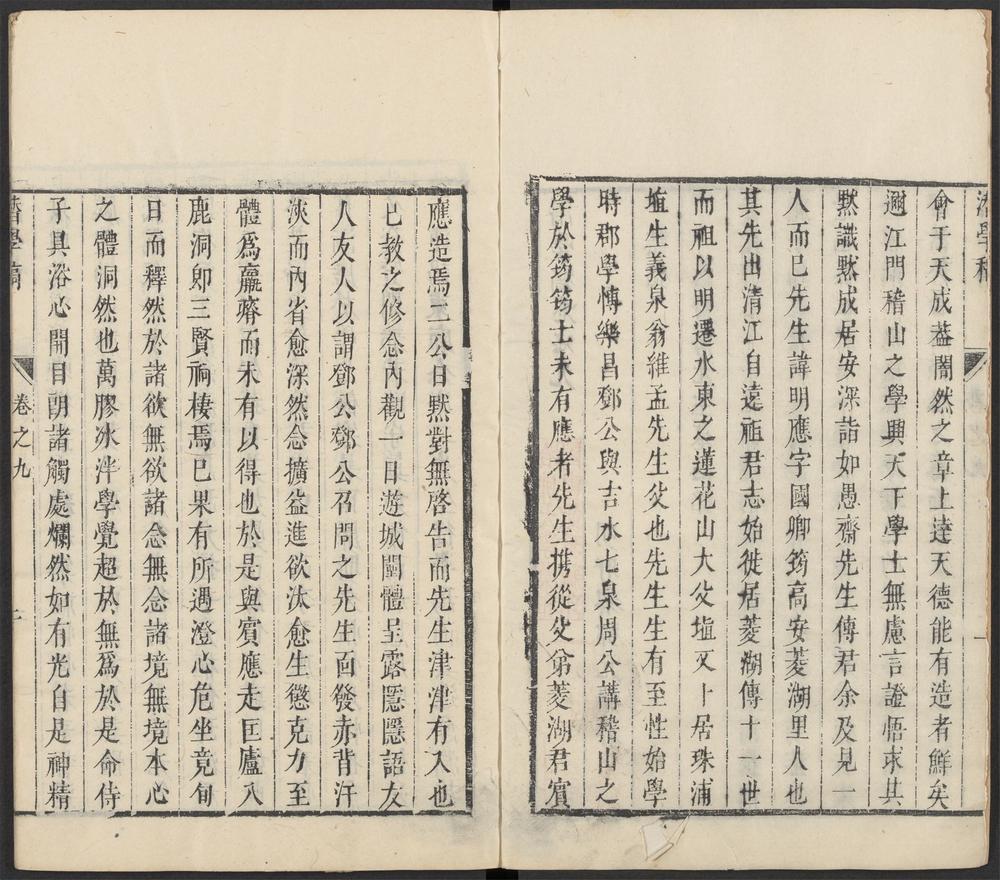 會于天成葢闇然之章上達天德能有造者鮮矣
邇江門稽山之學興天下學士無慮言證悟求其
默識默成居安深詣如愚齋先生傳君余及見一
人而已先生諱明應字國卿筠高安菱湖里人也
其先出清江自遠祖君志始徙居菱湖傳十一世
而祖以明遷水東之蓮花山大父塩又卜居珠浦
塩生義泉翁維孟先生父也先生生有至性始學
時郡學慱樂昌鄧公與吉水七泉周公講稽山之
學於筠筠士未有應者先生携從父弟菱湖君賓
應造焉二公日默對無啓告而先生津津有入也
已教之修念內觀一日遊城闉體呈露隱隱語友
人友人以謂鄧公鄧公召問之先生面發赤背汗
浹而內省愈深然念擴益進欲汰愈生懲克力至
體爲羸瘠而未有以得也於是與賓應走匡廬入
鹿洞卽三賢祠棲焉已果有所遇澄心危坐竟旬
日而釋然於諸欲無欲諸念無念諸境無境本心
之體洞然也萬膠冰泮學覺超於無爲於是命侍
子具浴心開目朗諸觸處爛然如有光自是神精
學
卷之九